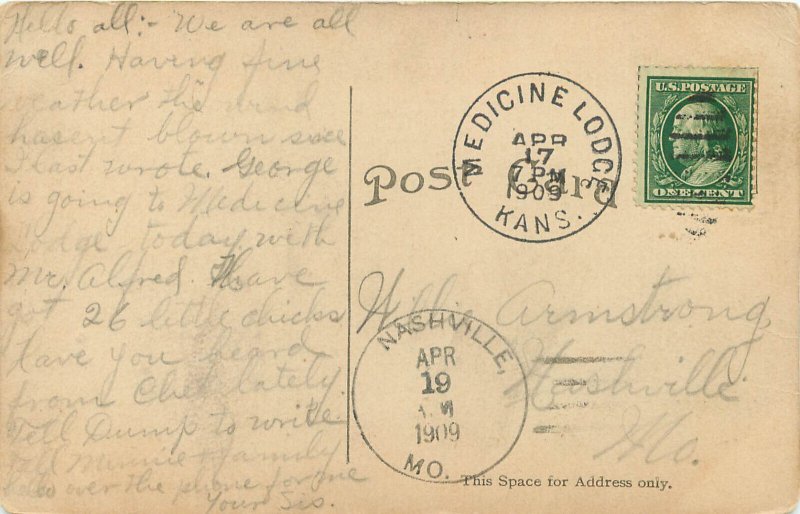 Hello all:- We are all
well. Having fine
weather the wind
hasent blown since
I last wrote. George
is going to Medicine
Lodge today with
Mr. Alfred. I have
got 26 little chicks
Have you heard
from Chet lately.
Tell Dump to write
Tell Minnie & family
hello over the phone for me
Your Sis.
Post Card
MEDICINE LODGE
APR
17
7 PM
1909
KANS.
U.S. POSTAGE
ONE CENT
Willie Armstrong
Nashville
Mo.
NASHVILLE,
APR
19
1909
MO.
This Space for Address only.